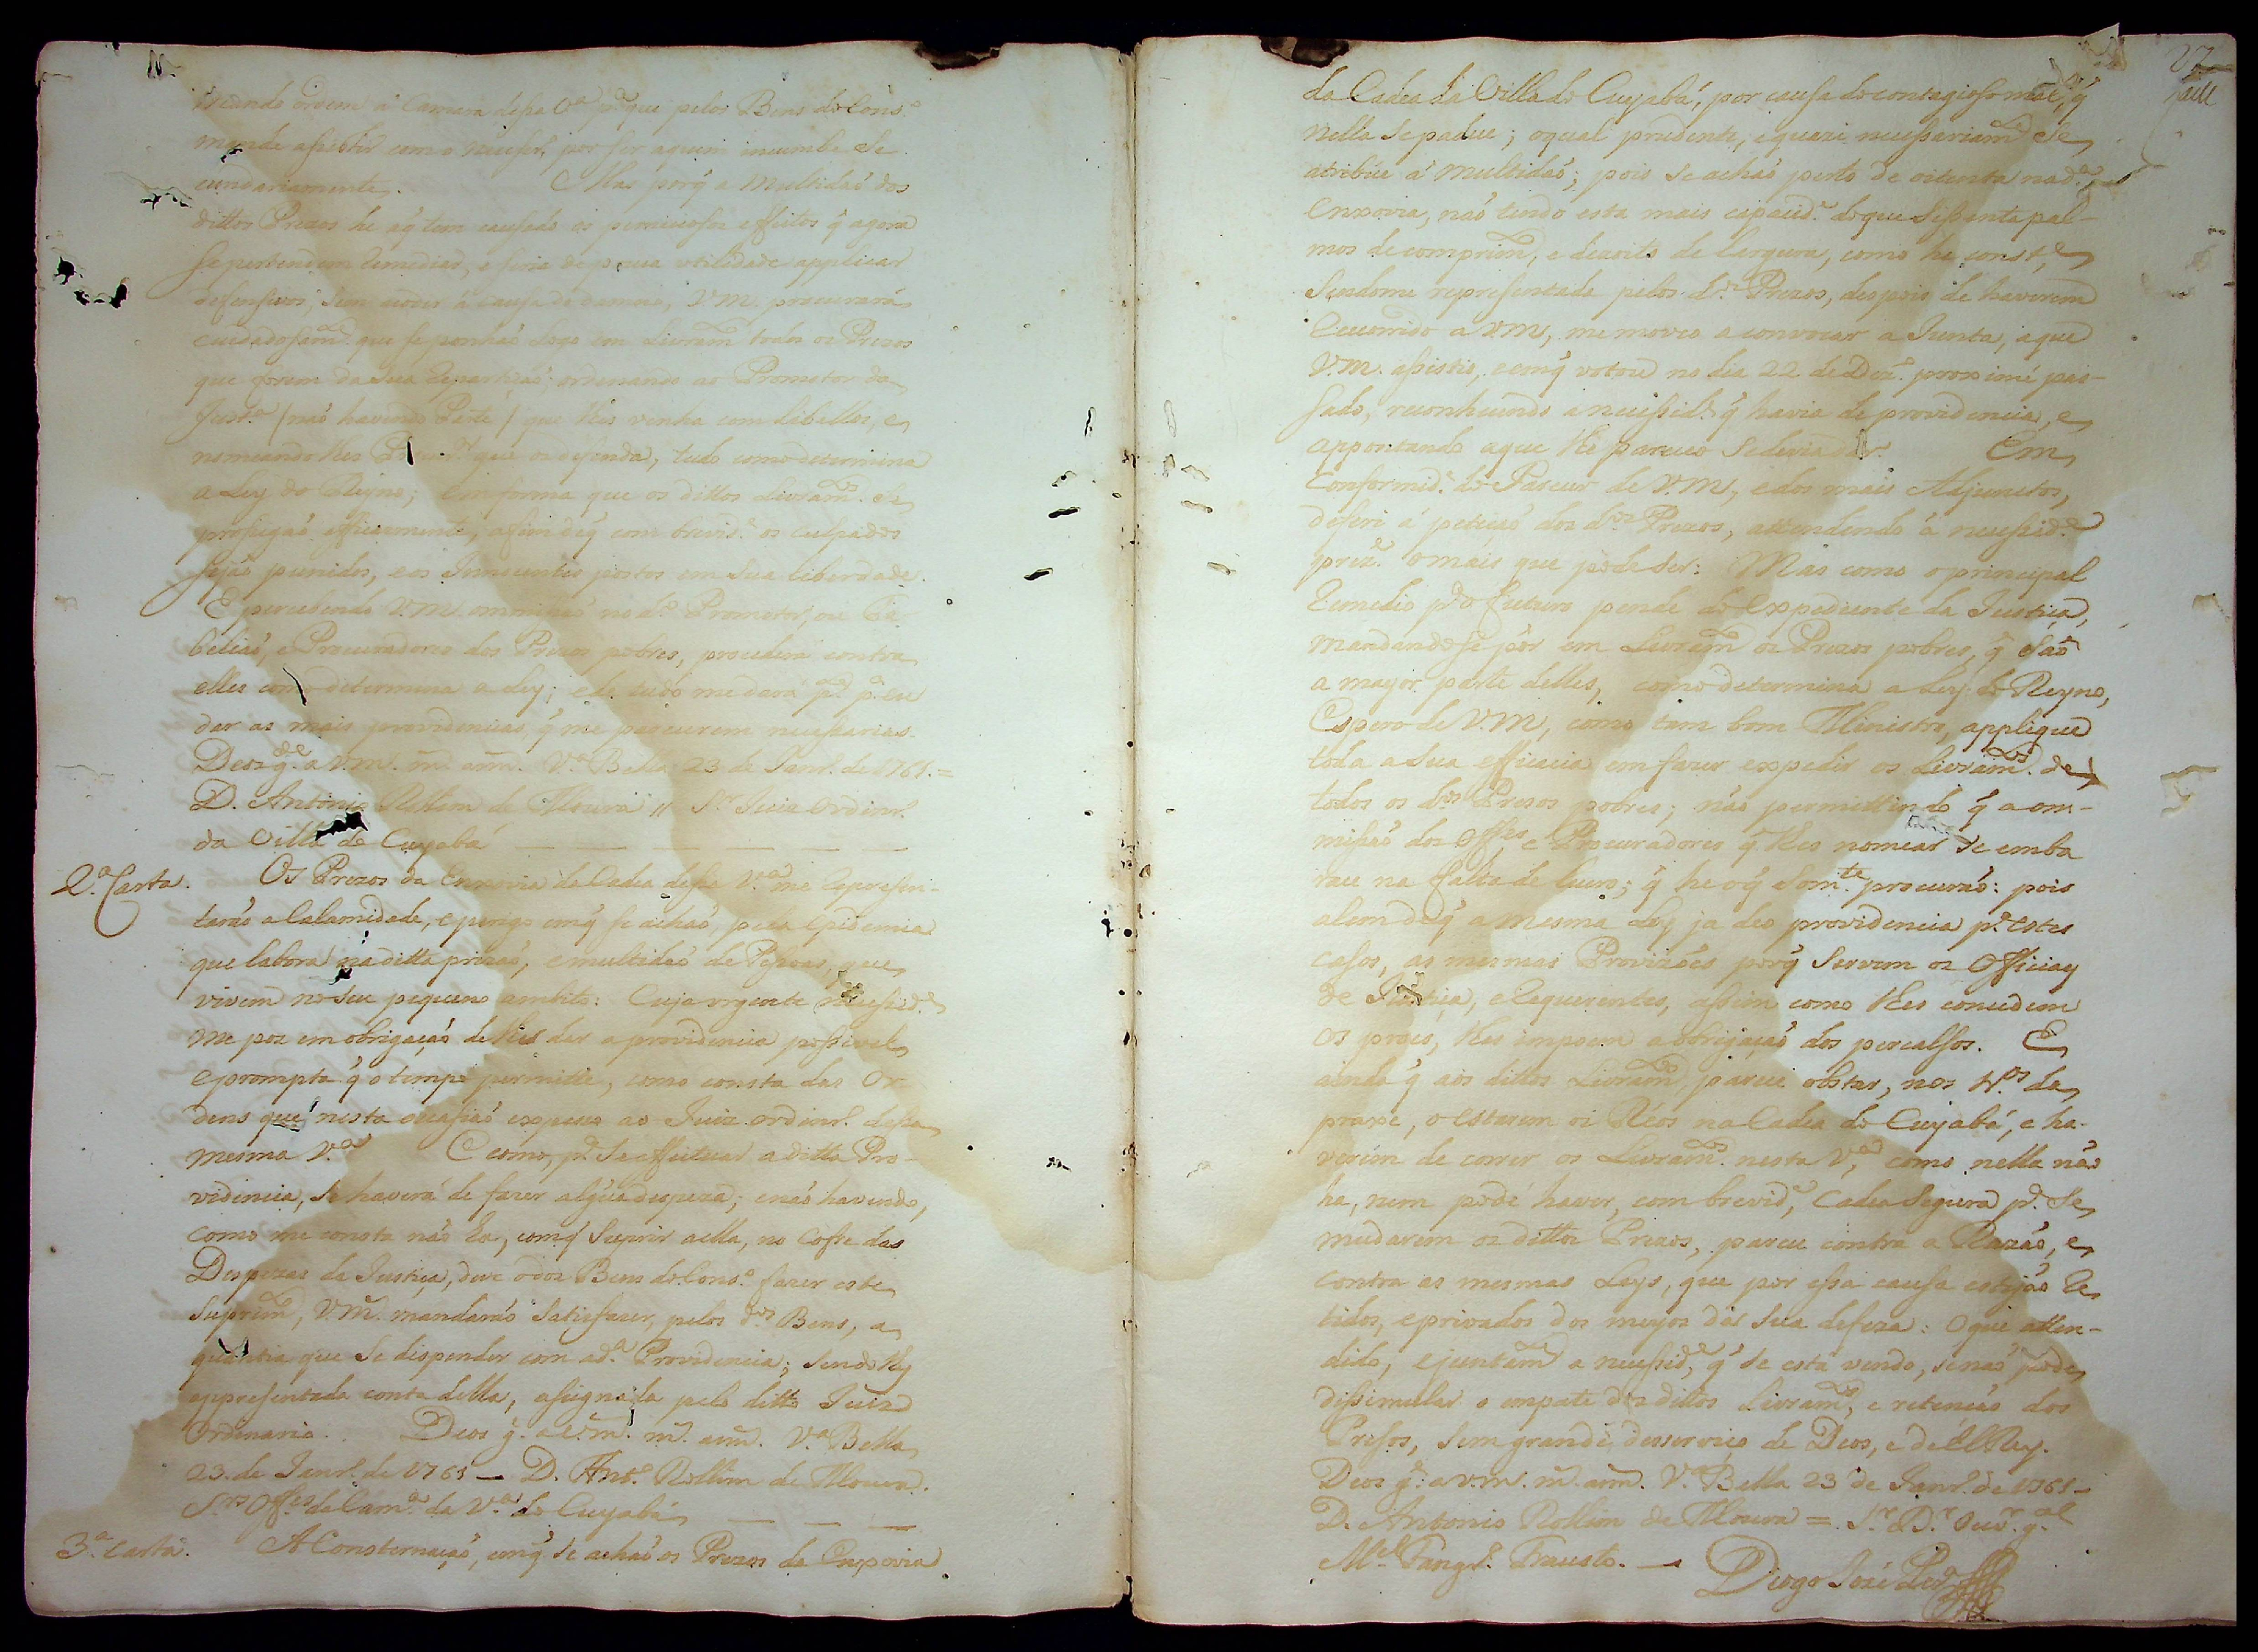 ordem á Camara dessa V.ª p.ª que pelos Bens do Cons.º
mande assistir com o necess.º, por ser aquem incumbe Se
cundariamente. Mas porq̃ a Multidaõ dos
dittos Prezos he aq̃ tem causado os perniciosos effeitos q̃ agora
se pertendem remediar, e seria de pouca utilidade applicar
defensivos, sem acodir á causa do damno, V.M. procurará
cuidadosam.te que se ponhaõ logo em Livram.to todos os Prezos
que forem da Sua Repartiçaõ, ordenando ao Promotor da
Just.ª (naõ havendo Parte) que lhes venha com Libellos, e
nomeando lhes que os defenda, tudo como determina
a Ley do Reyno; em forma que os dittos Livram.tos Se
prosigaõ efficazmente, afim deq̃ com brevid.e os culpados
sejaõ punidos, e os Innocentes postos em Sua liberdade.
E percebendo V.M. ommissaõ no d.º Promotor, ou Ta
belliaõ, e Procuradores dos Prezos pobres, procederá contra
elles como determina a Ley; e de tudo me dará p.te p.ª eu
dar as mais providencias q̃ me parecerem necessarias.
Deos g.de a V.M. m.s ann.s V.ª Bella 23 de Janr.º de 1761.=
D. Antonio Rollim de Moura // S.r Juiz Ordinr.º
da Villa do Cuyabá — — — — —
2.ª Carta. Os Prezos da Enxovia da Cadea dessa V.ª me reprezen-
taraõ a Calamidade, e perigo emq̃ se achaõ, pela epidemia
que labora na ditta prizaõ, e multidaõ de Pessoas, que
vivem no seu pequeno ambito: Cuja urgente necessid.e
me poz em obrigaçaõ de lhes dar a providencia possivel
e prompta q̃ o tempo permitte, como consta das Or
dens que nesta occasiaõ expesso ao Juiz ordinr.º dessa
mesma V.ª E como, p.ª Se effeituar a ditta Pro-
videncia, se haverá de fazer algũa despeza; enaõ havendo,
como me consta naõ ha, comq̃ Suprir aella, no Cofre das
Despezas da Justiça, deve o dos Bens do Cons.º fazer este
Suprim.to, V.M. mandaraõ Satisfazer, pelos d.os Bens, a
quantia que Se dispender com a d.ª Providencia; Sendolhes
appresentada conta della, assignada pelo ditto Juiz
Ordinario. Deos g.de a V.M. m.s ann.s V.ª Bella
23 de Janr.º de 1761 — D. Ant.º Rollim de Moura.
S.res Off.es da Cam.ra da V.ª do Cuyabá — — —
3.ª Carta. A Consternaçaõ, emq̃ se achaõ os Prezos da Enxovia
27
da Cadea da Villa do Cuyabá, por causa do contagioso mal, q̃
nella Se padece; oqual prudente, e quazi necessariam.te Se
atribúe á multidaõ; pois Se achaõ perto de oitenta na d.ª
Enxovia, naõ tendo esta mais capacid.e do que Sessenta pal-
mos de comprim.to, e dezoito de largura, como he const.e
Sendome reprezentada pelos d.os Prezos, despois de haverem
recorrido a V.M, me moveo a convocar a Junta, aque
V.M. assistio, e emq̃ votou no dia 22 de Dez.º proximè pas-
sado, reconhecendo a necessid.e q̃ havia de providencia, e
appontando aque lhe pareceo Se devia dar. Em
Conformid.e do Parecer de V.M, e dos mais Adjunctos,
deferi á petiçaõ dos d.os Prezos, attendendo á necessid.e
prez.te o mais que pode Ser: Mas como o principal
remedio p.ª o futuro pende do expediente da Justiça,
mandandose pôr em Livram.to os Prezos pobres, q̃ Saõ
a mayor parte delles, como determina a Ley do Reyno,
Espero de V.M, como tam bom Ministro, applique
toda a Sua efficacia em fazer expedir os Livram.tos de
todos os d.os Prezos pobres; naõ permittindo q̃ a om-
missaõ dos Off.es, e Procuradores q̃ lhes nomear Se emba
race na falta de lucro; q̃ he oq̃ Som.te procuraõ: pois
alem deq̃ a mesma Ley ja deo providencia p.ª estes
casos, as mesmas Provizões porq̃ Servem os Officiaes
de Justiça, e Requerentes, assim como lhes concedem
os proes, lhes impoem a obrigaçaõ dos percalsos. E
ainda q̃ aos dittos Livram.tos parece obstar, nos tr.os da
praxe, o estarem os Réos na Cadea do Cuyabá, e ha-
verem de correr os Livram.tos nesta V.ª, como nella naõ
ha, nem póde haver, com brevid.e, Cadea Segura p.ª Se
mudarem os dittos Prezos, parece contra a Razaõ, e
contra as mesmas Leys, que por essa causa estejaõ re
tidos, e privados dos meyos da Sua defeza: O que atten-
dido, e juntam.te a necessid.e, q̃ Se está vendo, Senaõ pode
dissimular o empate dos dittos Livram.tos, e retençaõ dos
Presos, Sem grande desserviço de Deos, e de ElRey.
Deos g.de a V.M. m.s ann.s V.ª Bella 23 de Janr.º de 1761 —
D. Antonio Rollim de Moura = S.r D.r Ouv.r g.al
M.el Fangr.º Frausto. — Diogo José Per.ª